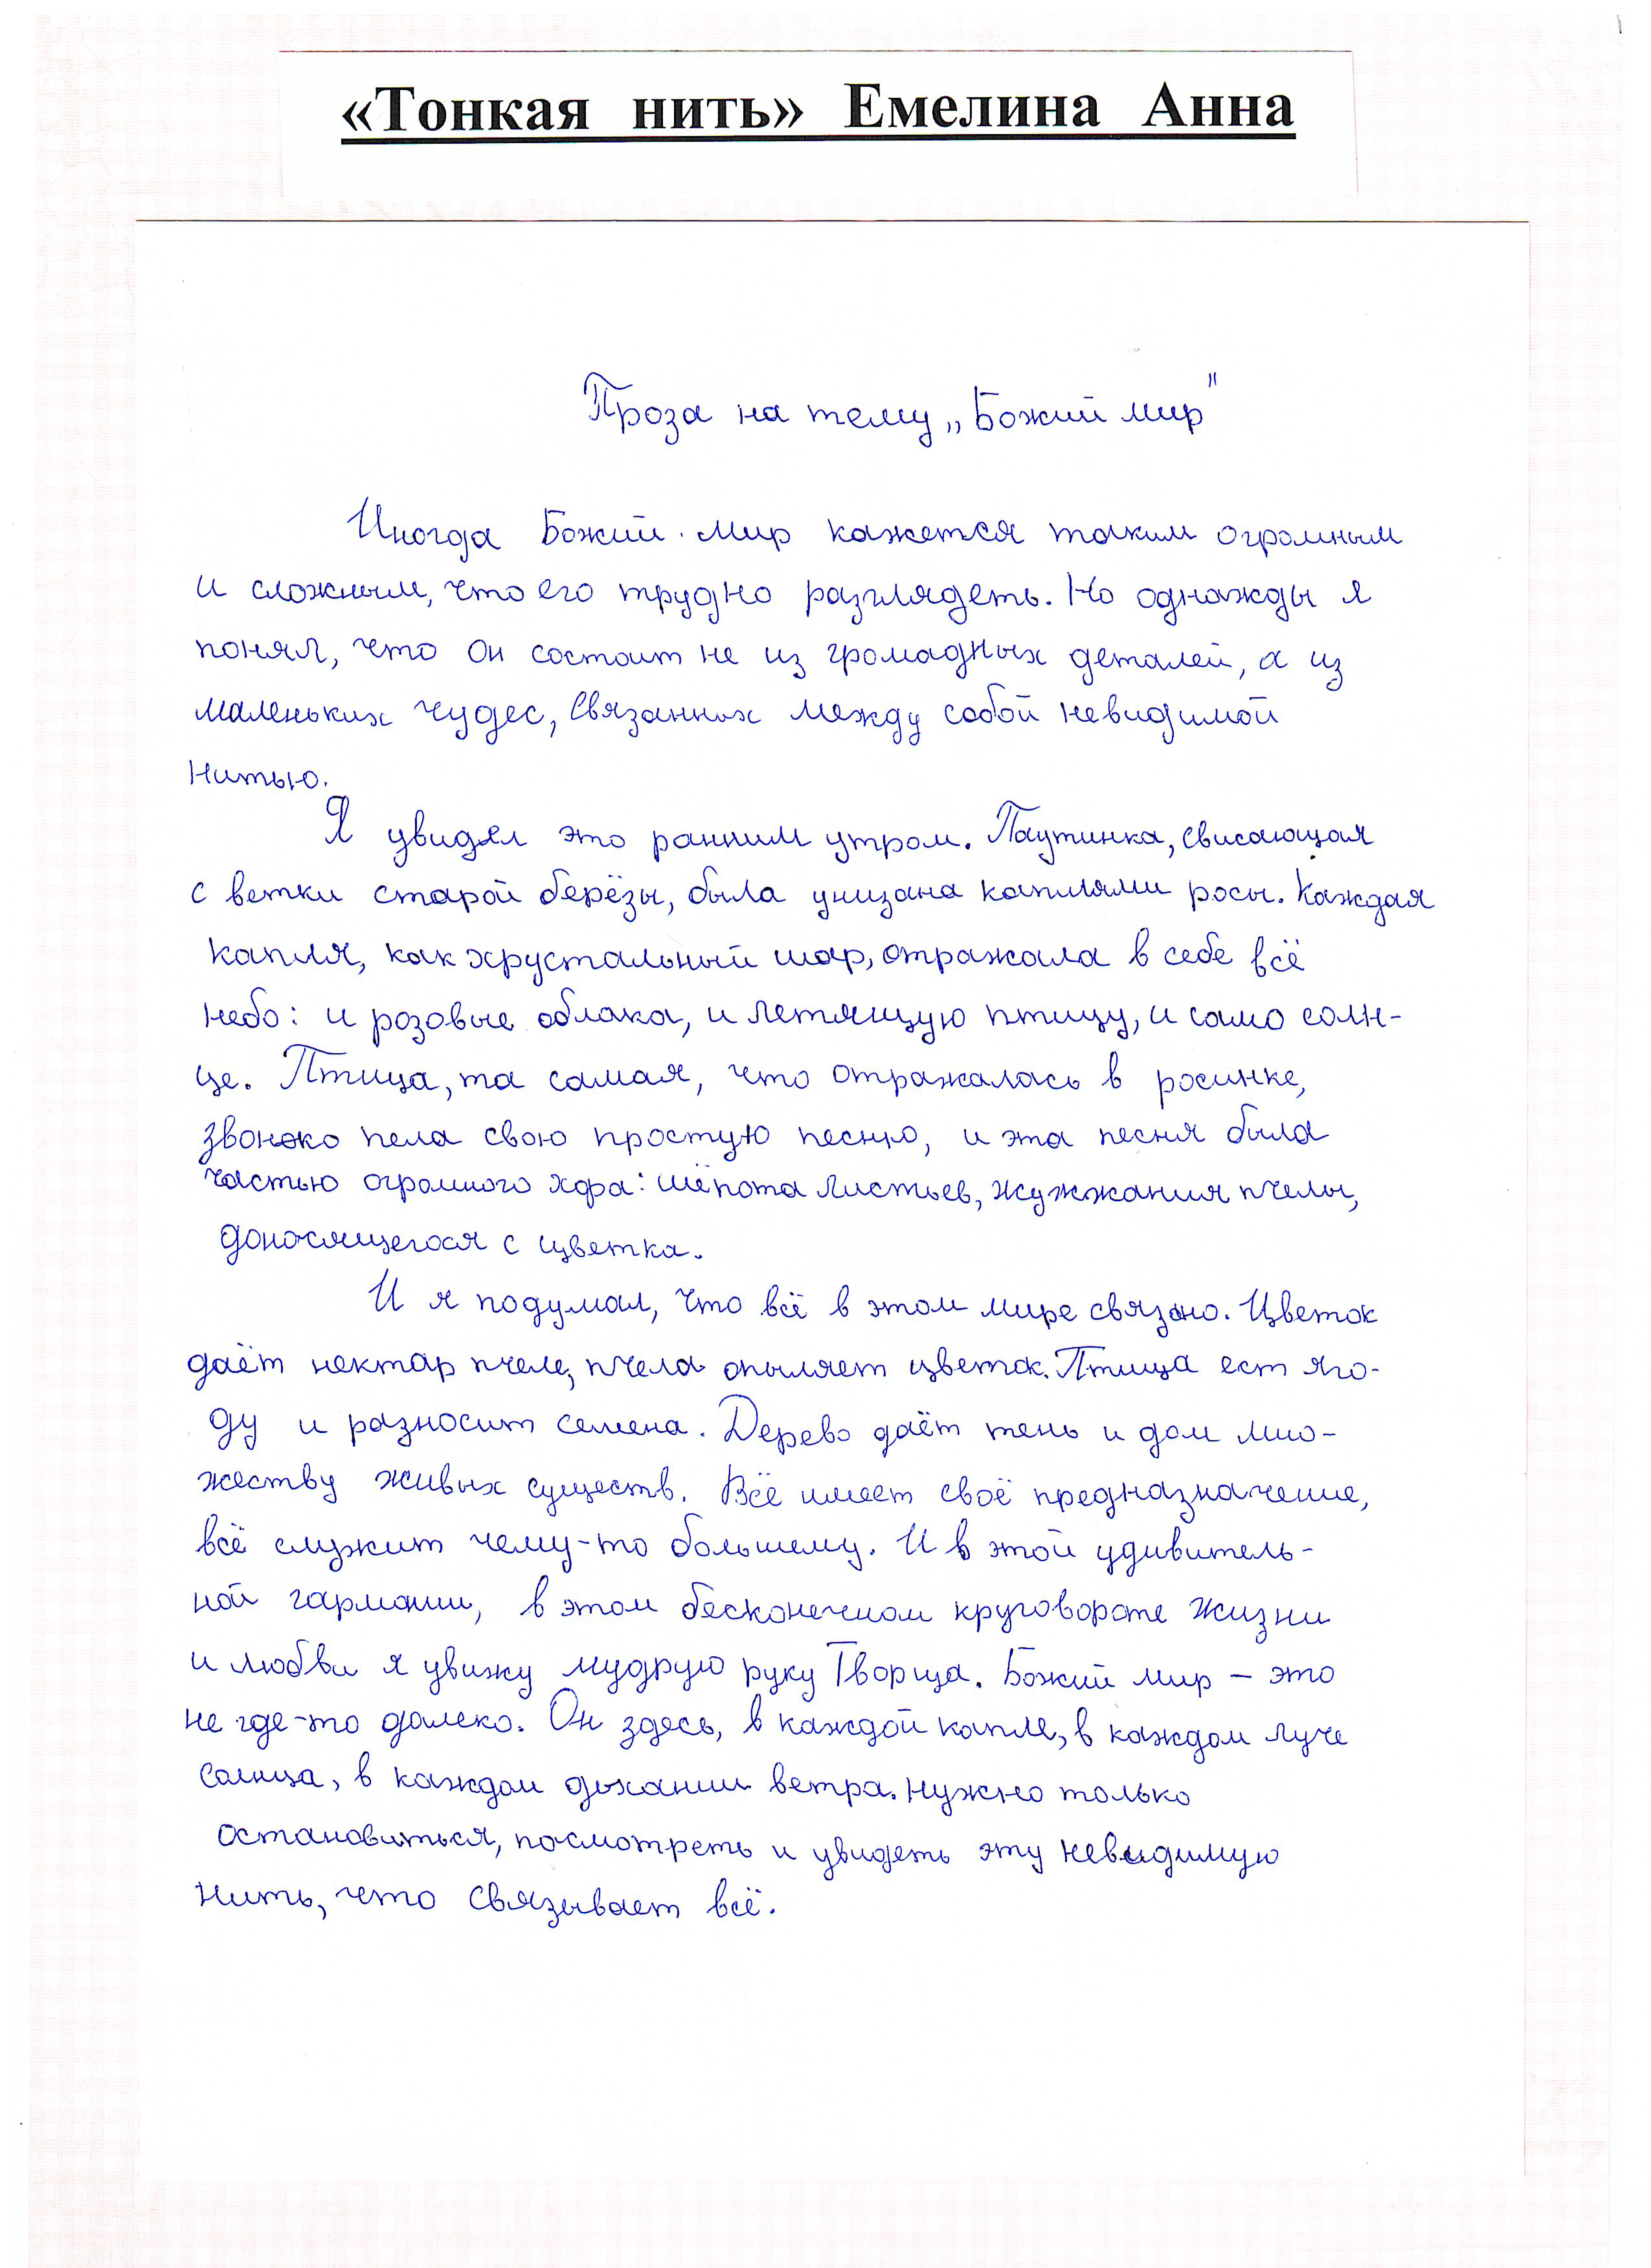 «Тонкая нить» Емелина Анна
Проза на тему „Божий мир"
Иногда Божий мир кажется таким огромным
и сложным, что его трудно разглядеть. Но однажды я
понял, что он состоит не из громадных деталей, а из
маленьких чудес, связанных между собой невидимой
нитью.
Я увидел это ранним утром. Паутинка, свисающая
с ветки старой берёзы, была унизана каплями росы. Каждая
капля, как хрустальный шар, отражала в себе всё
небо: и розовые облака, и летящую птицу, и само солн-
це. Птица, та самая, что отражалась в росинке,
звонко пела свою простую песню, и эта песня была
частью огромного хора: шёпота листьев, жужжания пчелы,
доносящегося с цветка.
И я подумал, что всё в этом мире связано. Цветок
даёт нектар пчеле, пчела опыляет цветок. Птица ест яго-
ду и разносит семена. Дерево даёт тень и дом мно-
жеству живых существ. Всё имеет своё предназначение,
всё служит чему-то большему. И в этой удивитель-
ной гармонии, в этом бесконечном круговороте жизни
и любви я увижу мудрую руку Творца. Божий мир – это
не где-то далеко. Он здесь, в каждой капле, в каждом луче
солнца, в каждом дыхании ветра. Нужно только
остановиться, посмотреть и увидеть эту невидимую
нить, что связывает всё.